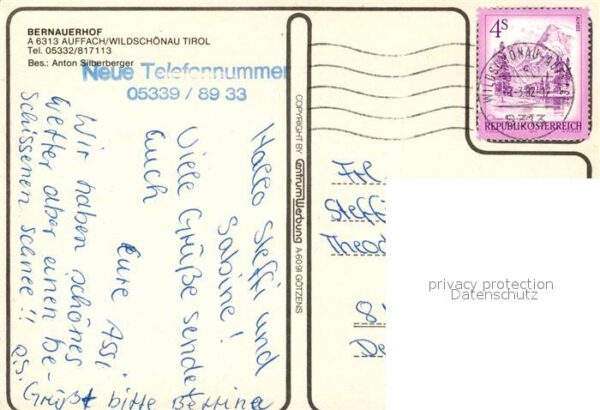 BERNAUERHOF
A 6313 AUFFACH/WILDSCHÖNAU TIROL
Tel. 05332/817113
Bes.: Anton Silberberger
Neue Telefonnummer
05339 / 89 33
Hallo Steffi und
Sabine!
Viele Grüße sendet
Euch
Eure Assi.
Wir haben schönes
Wetter aber einen be-
schissenen Schnee!!
P.S. Grüßt bitte Bettina
COPYRIGHT BY Zentrumwerbung A-6091 GÖTZENS
4S
ALMSEE
REPUBLIK ÖSTERREICH
WILDSCHÖNAU
6313
Frl.
Steffi
Theod
8
De
privacy protection
Datenschutz